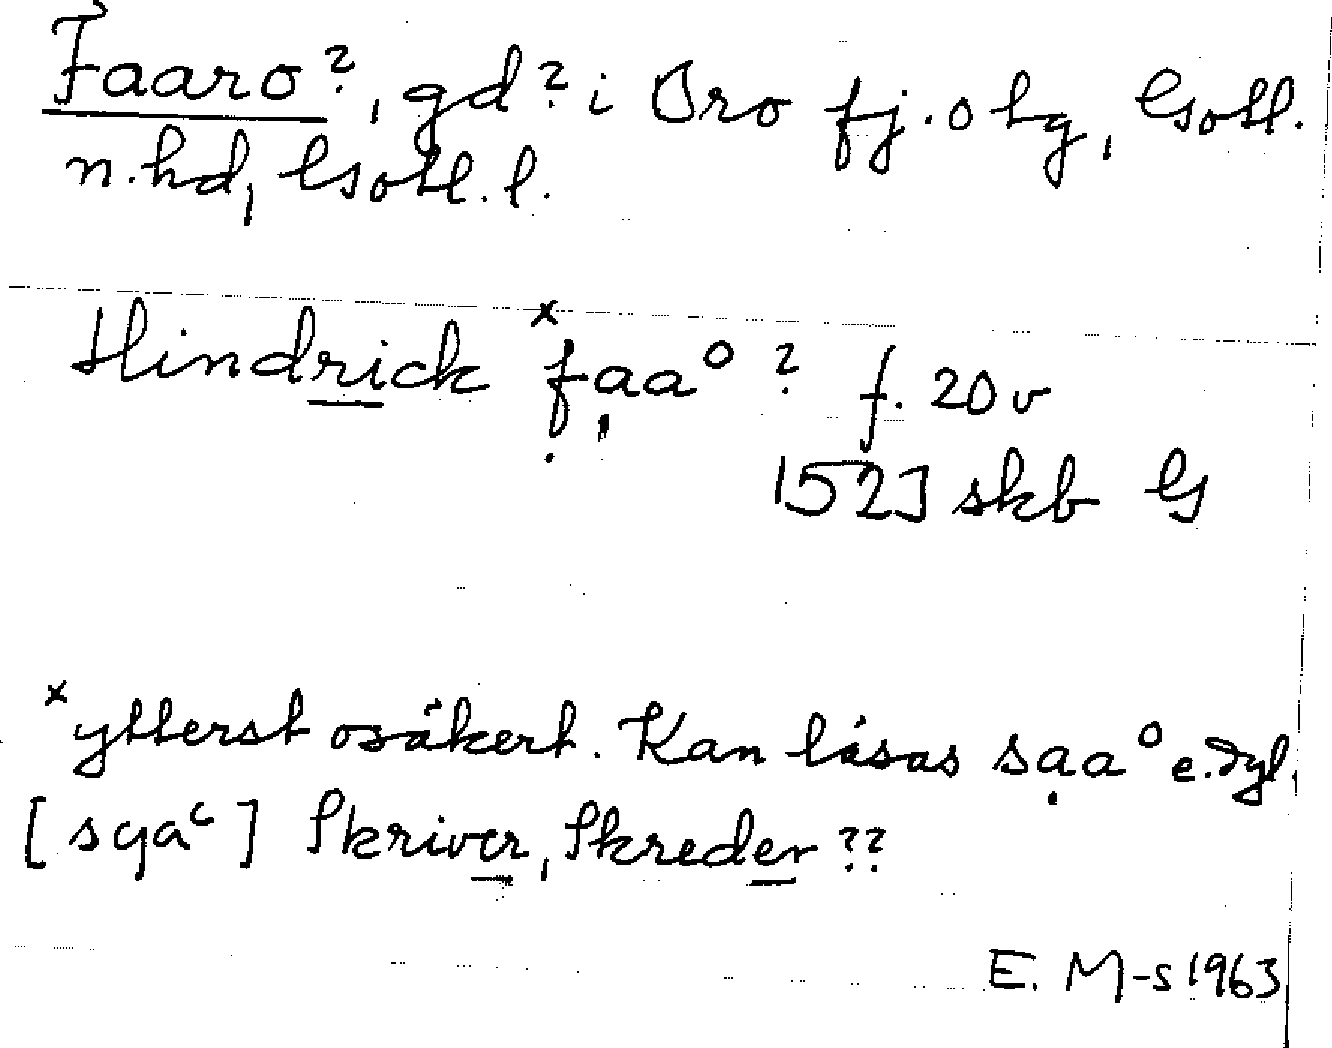 Faaro?, gd? i Bro fj. o tg, Gotl.
n. hd, Gotl. l.
Hindrick ˣfaaº ? f. 20 v
1523 skb G
ˣytterst osäkert. Kan läsas saaº e. dyl.
[sqaᶜ] Skriver, Skreder ??
E. M-s 1963